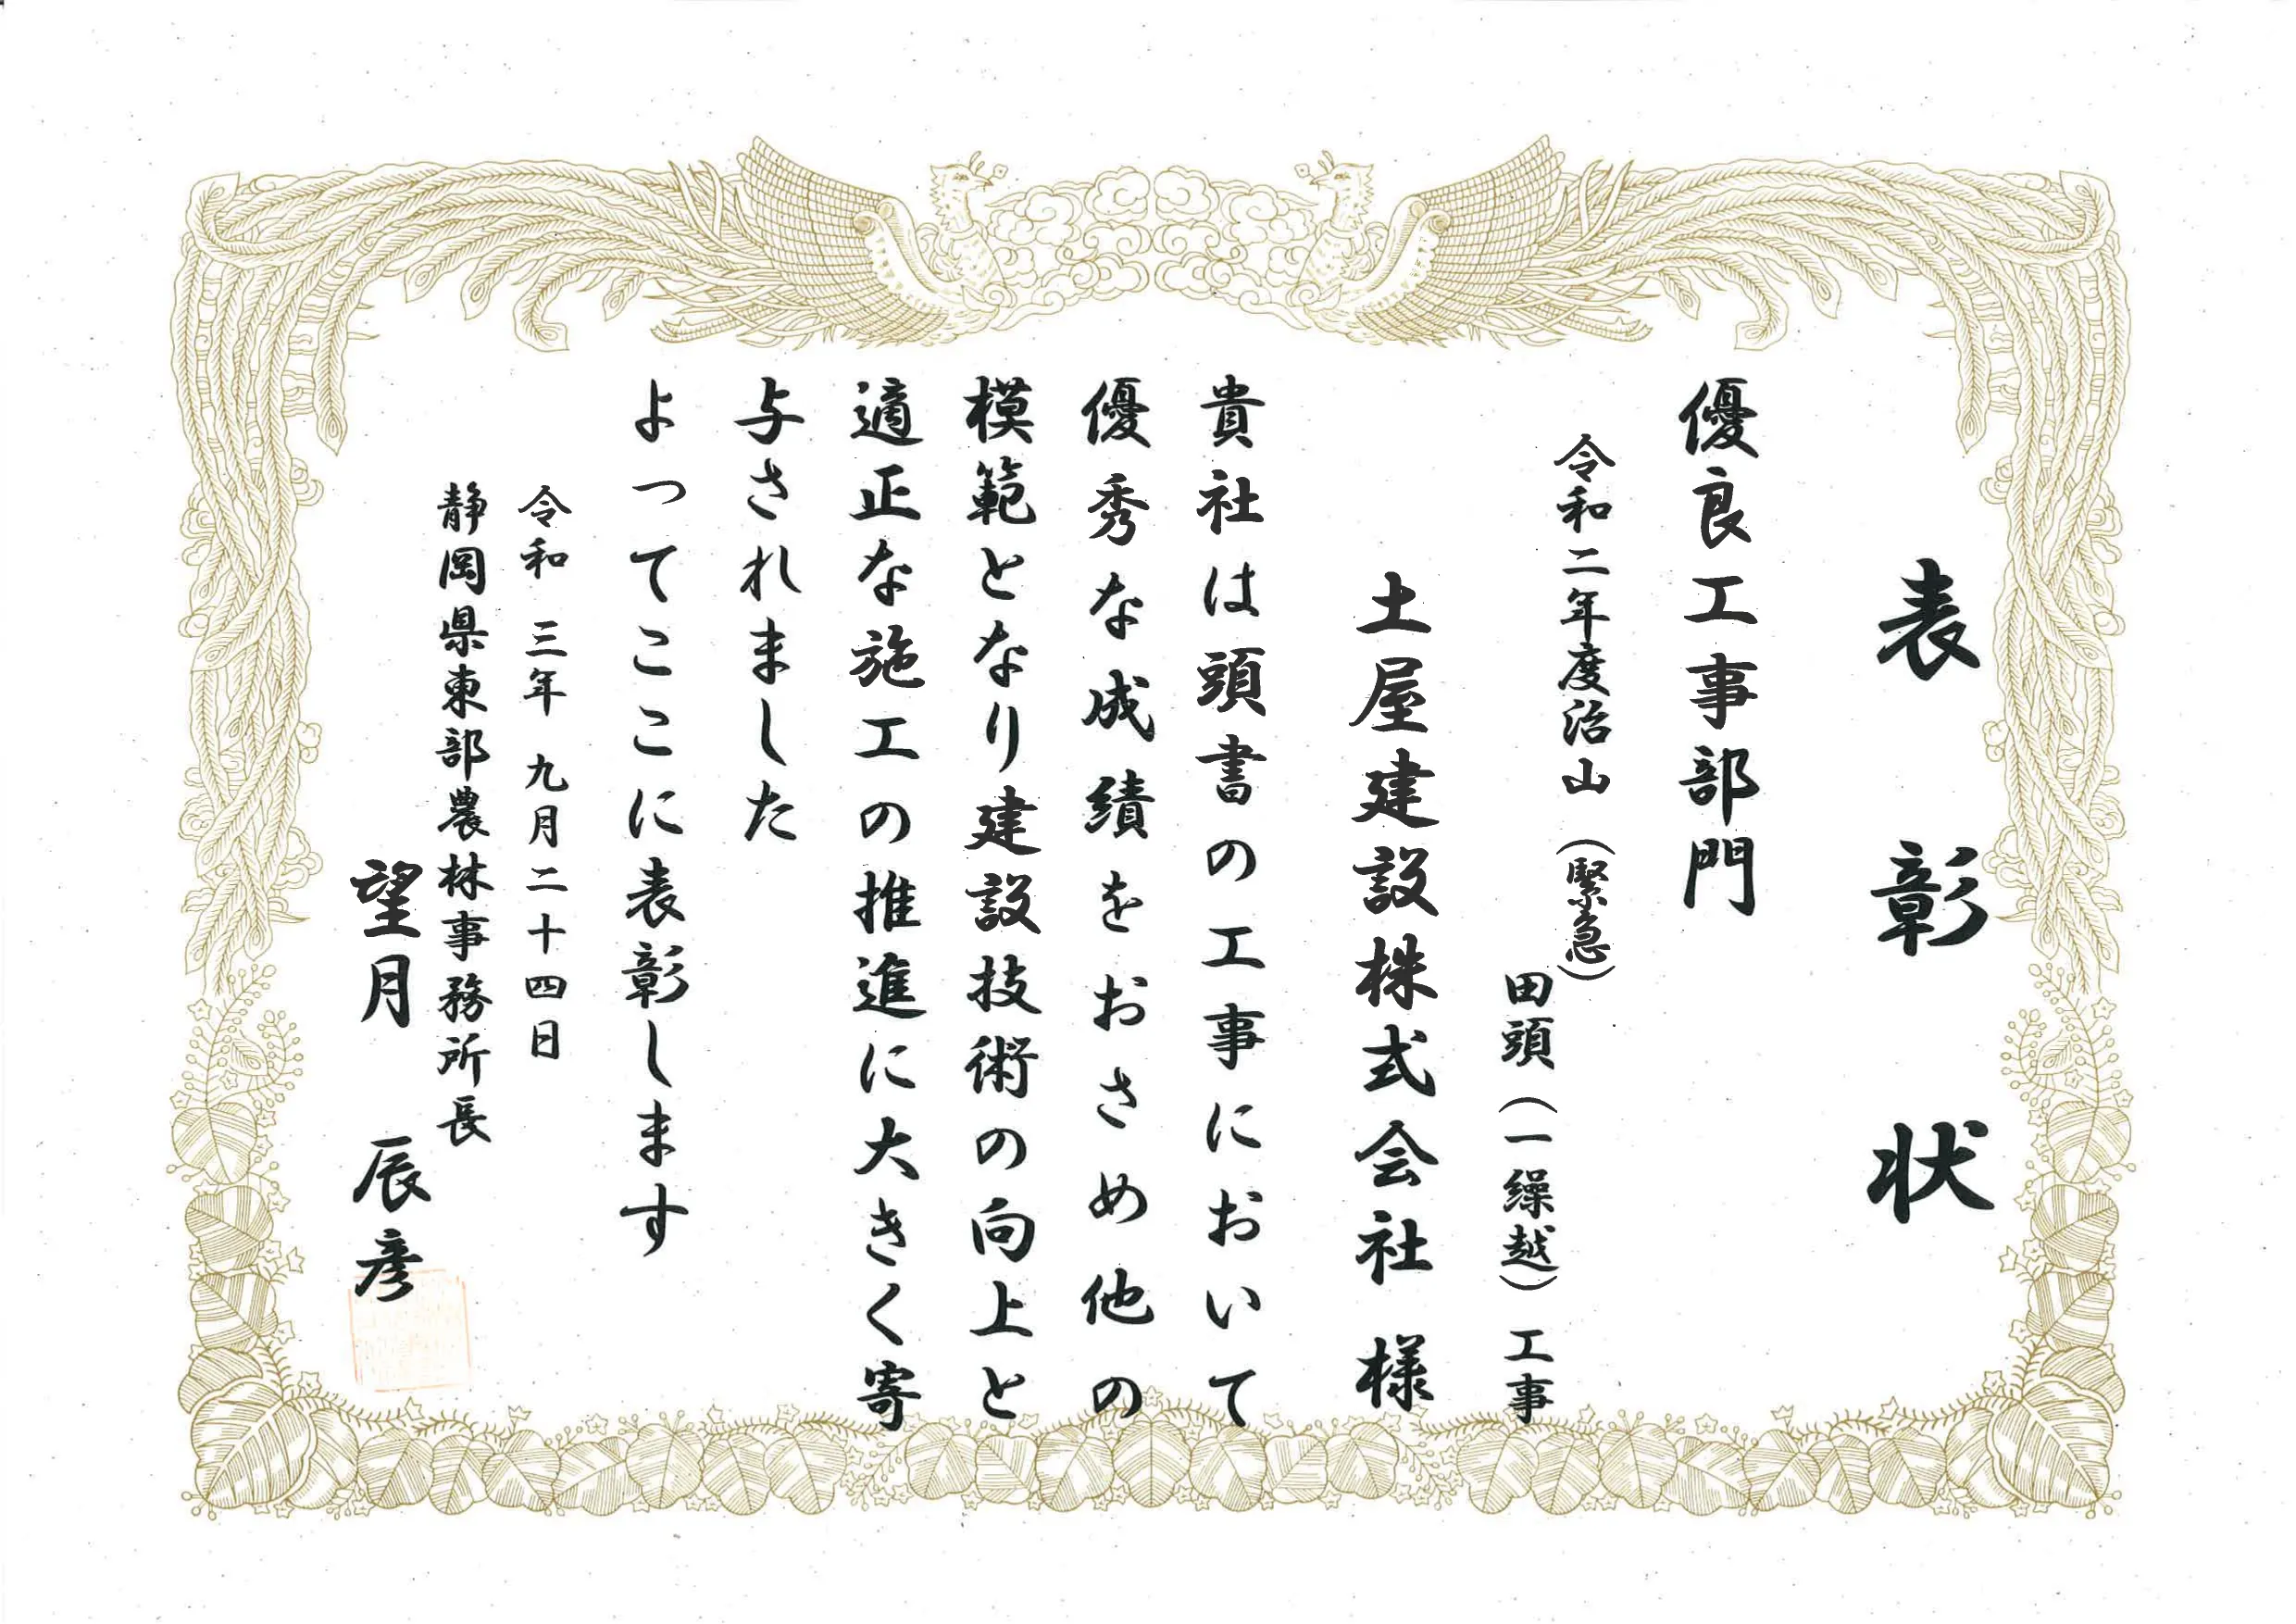 表彰状
優良工事部門
令和二年度治山（緊急）
田頭（一繰越）工事
土屋建設株式会社 様
貴社は頭書の工事において
優秀な成績をおさめ他の
模範となり建設技術の向上と
適正な施工の推進に大きく寄
与されました
よってここに表彰します
令和 三年 九月二十四日
静岡県東部農林事務所長
望月 辰彦